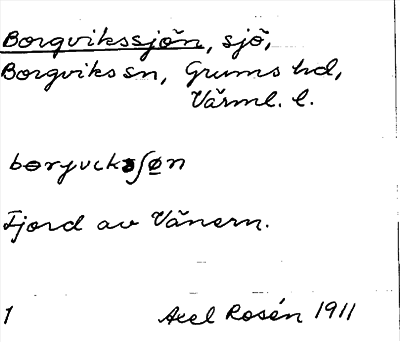 Borgvikssjön, sjö,
Borgviks sn, Grums hd,
Värml. l.
Fjord av Vänern.
1 Axel Rosén 1911